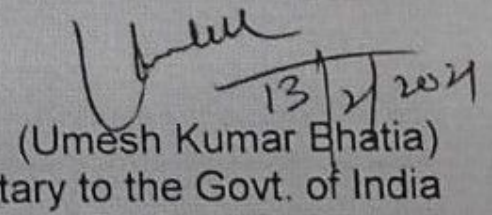 13/2/2021
(Umesh Kumar Bhatia)
tary to the Govt. of India